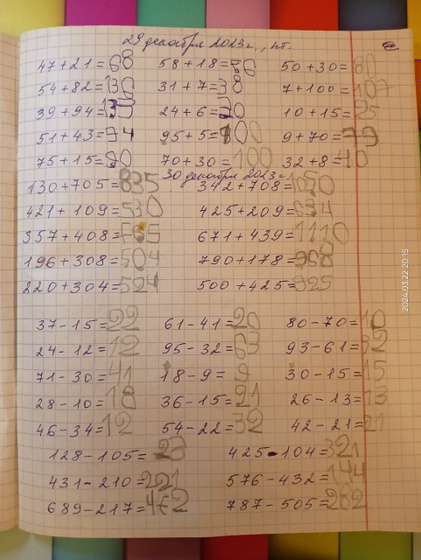 29 декабря 2023г., пт.
47+21=68 58+18= 50+30=80
54+82=136 31+7=38 7+100=107
39+94= 24+6=30 10+15=25
51+43=94 95+5=100 9+70=79
75+15=90 70+30=100 32+8=40
30 декабря 2023г.
130+705=835 342+708=1050
421+109=530 425+209=634
357+408= 671+439=1110
196+308=504 790+178=968
220+304=524 500+425=925
37-15=22 61-41=20 80-70=10
24-12=12 95-32=63 93-61=32
71-30=41 18-9=9 30-15=15
28-10=18 36-15=21 26-13=13
46-34=12 54-22=32 42-21=21
128-105=23 425-104=321
431-210=221 576-432=144
689-217=472 787-505=282
2024.03.22 20:15